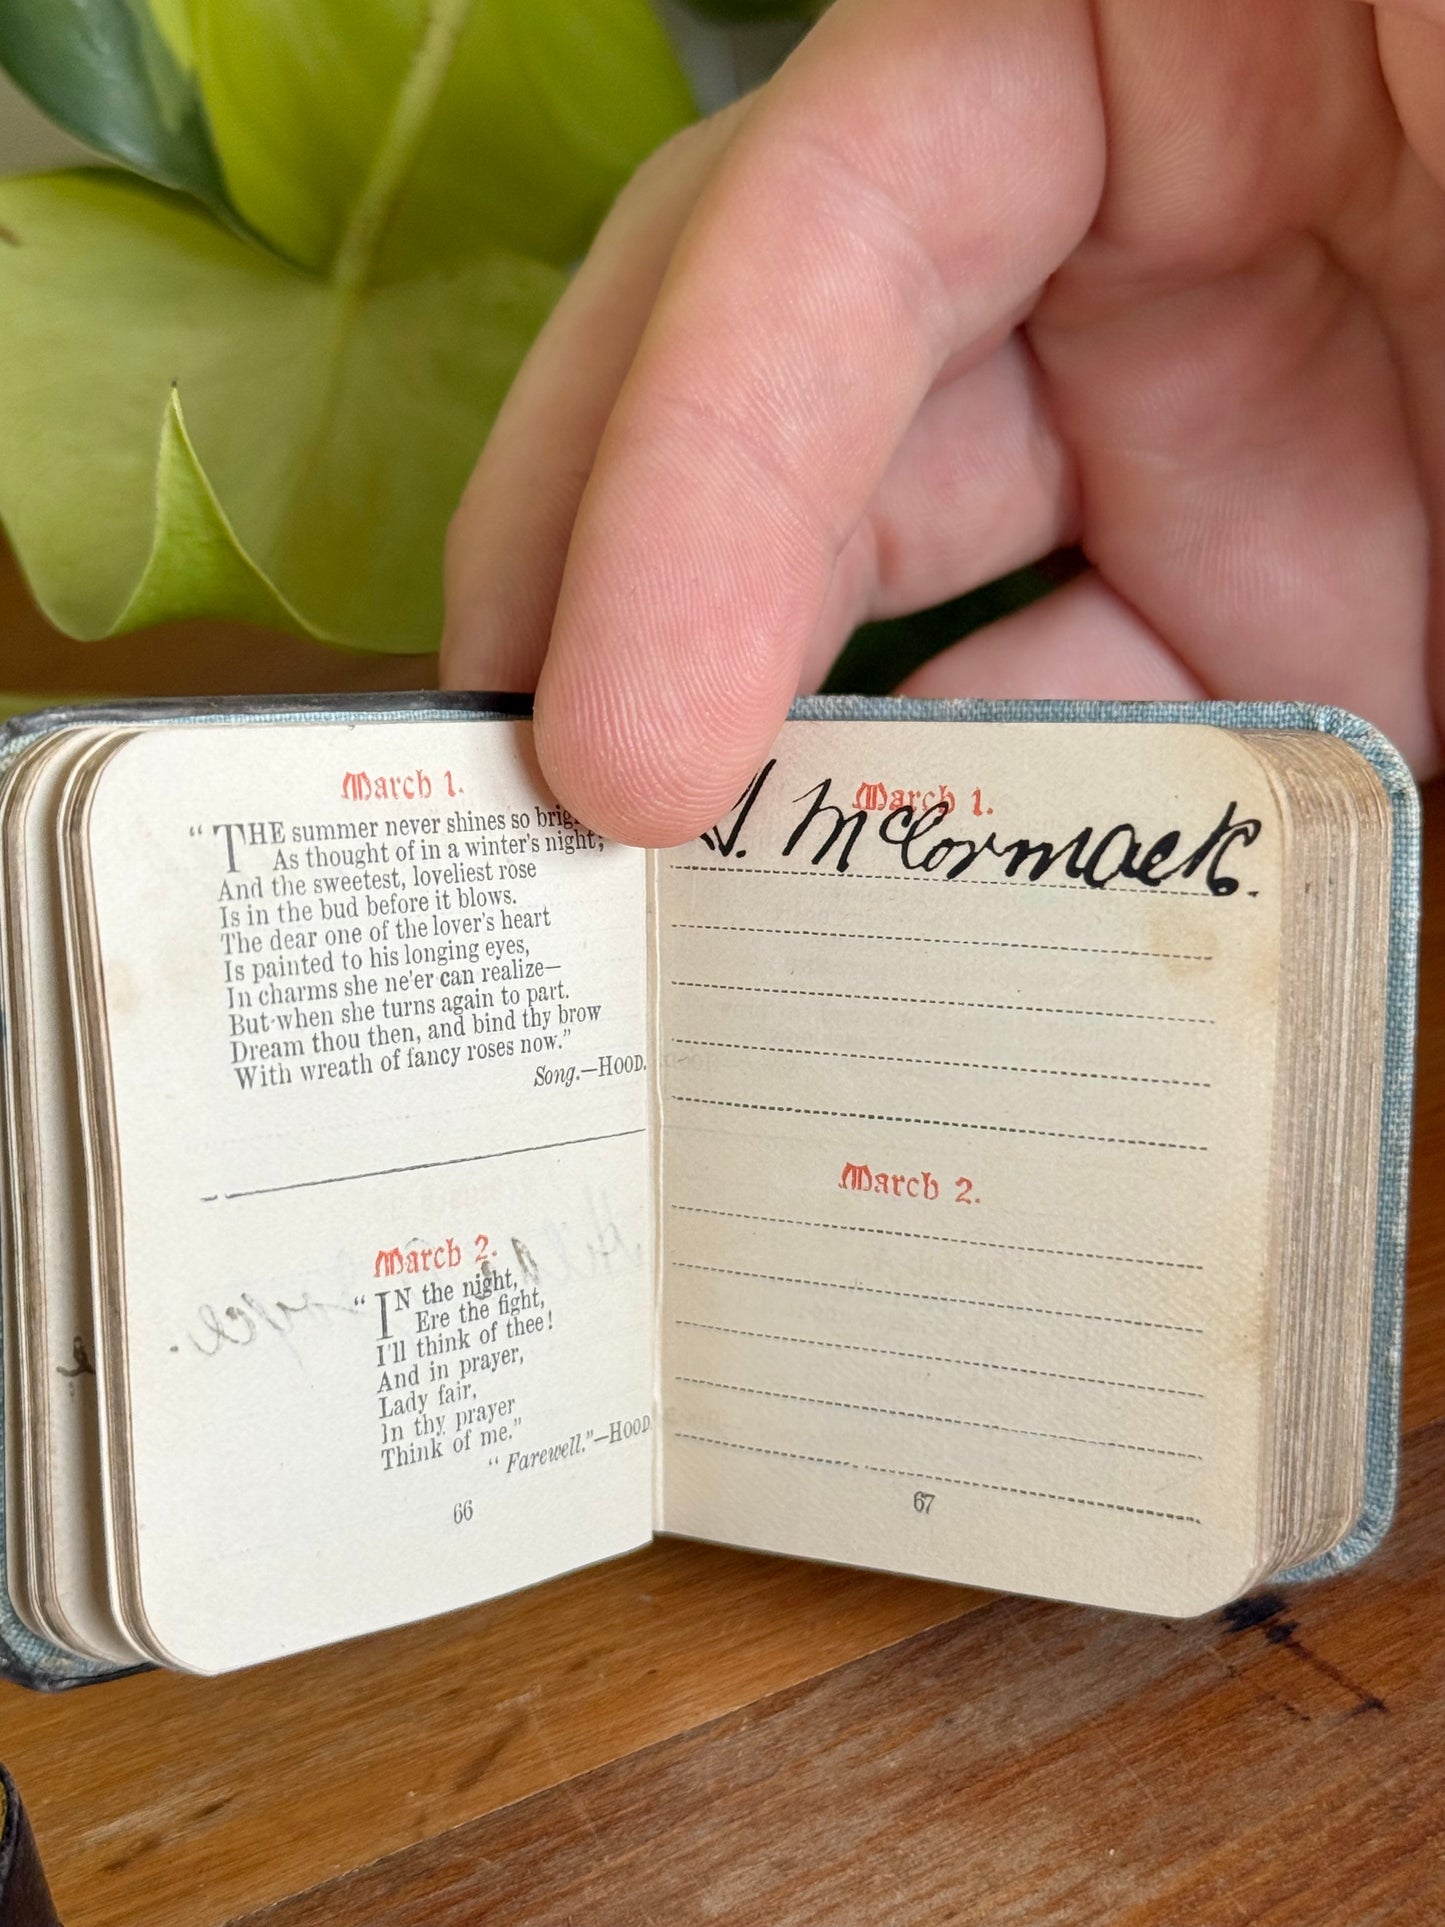 March 1.
“THE summer never shines so brig
As thought of in a winter's night;
And the sweetest, loveliest rose
Is in the bud before it blows.
The dear one of the lover's heart
Is painted to his longing eyes,
In charms she ne'er can realize—
But when she turns again to part.
Dream thou then, and bind thy brow
With wreath of fancy roses now.”
Song.—HOOD.
March 2.
“IN the night,
Ere the fight,
I'll think of thee!
And in prayer,
Lady fair,
In thy prayer
Think of me.”
“Farewell.”—HOOD
66
March 1.
McCormack.
March 2.
67